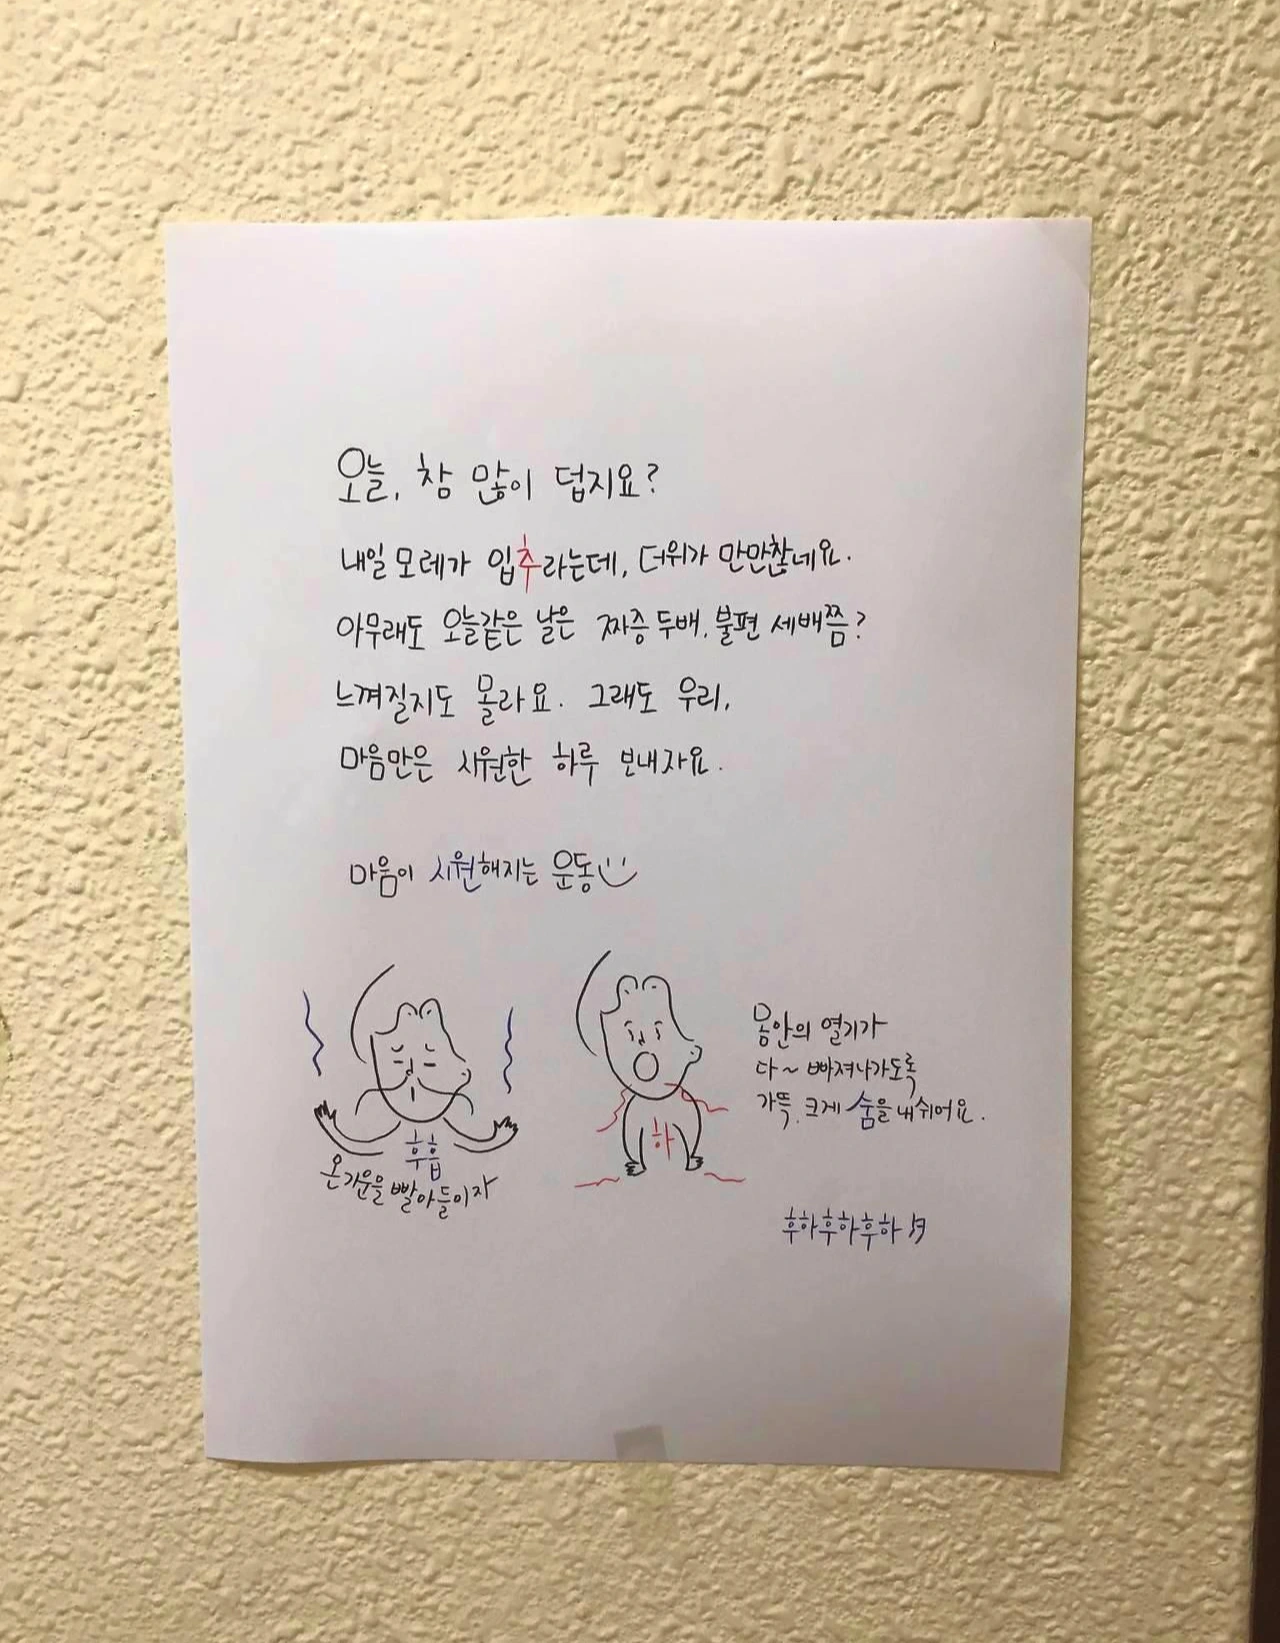 오늘, 참 많이 덥지요?
내일 모레가 입추라는데, 더위가 만만찮네요.
아무래도 오늘같은 날은 짜증 두배, 불편 세배쯤?
느껴질지도 몰라요. 그래도 우리,
마음만은 시원한 하루 보내자요.
마음이 시원해지는 운동
후흡
온기운을 빨아들이자
하
몸안의 열기가
다~ 빠져나가도록
가뜩, 크게 숨을 내쉬어요.
후하후하후하